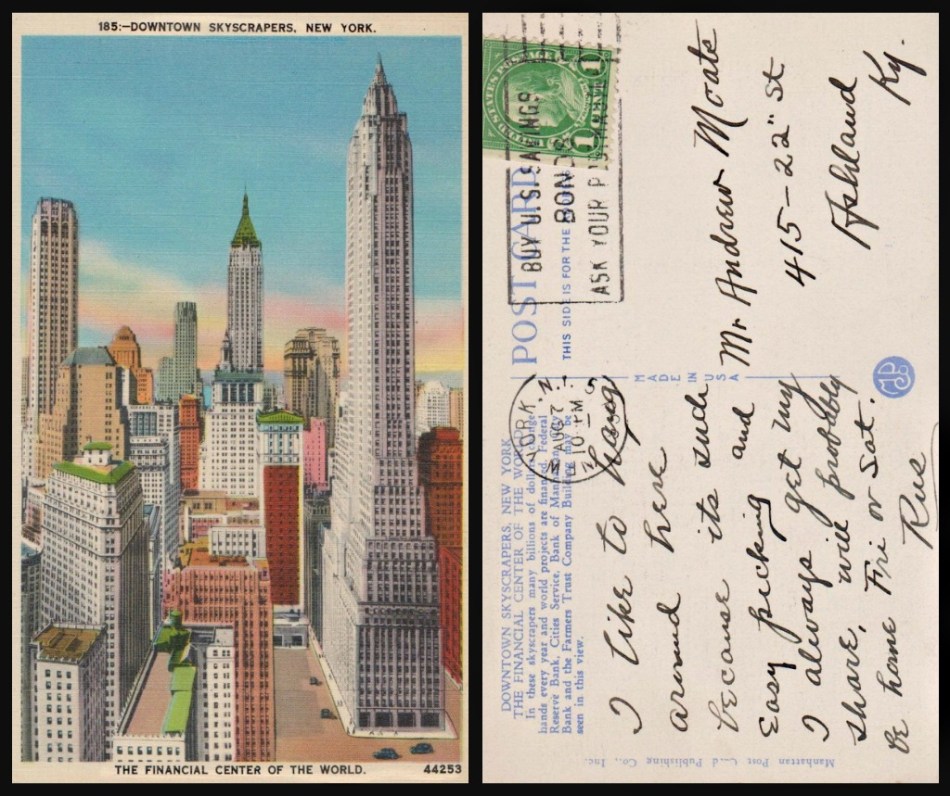 185:—DOWNTOWN SKYSCRAPERS, NEW YORK.
THE FINANCIAL CENTER OF THE WORLD.
44253
UNITED STATES POSTAGE
1 1
BUY U.S. SAVINGS
BONDS
ASK YOUR P
POST CARD
THIS SIDE IS FOR THE
YORK, N.
AUG 2
10 – PM
MADE IN USA
DOWNTOWN SKYSCRAPERS, NEW YORK
THE FINANCIAL CENTER OF THE WORLD
In these skyscrapers many billions of dollars change
hands every year and world projects are financed. Federal
Reserve Bank, Cities Service, Bank of Manhattan
Bank and the Farmers Trust Company Building may be
seen in this view.
I like to
around here
because its such
Easy picking and
I always get my
share, will probably
be home Fri or Sat.
Rus
Mr Andrew Moats
415–22" St
Ashland
Ky.
MP
Manhattan Post Card Publishing Co., Inc.